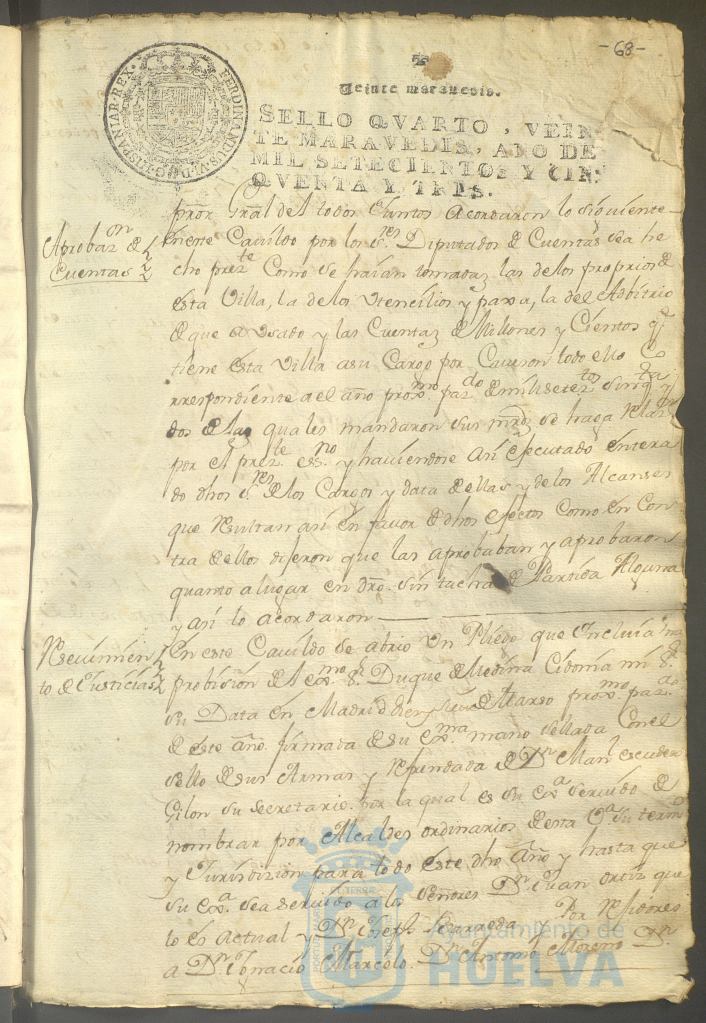 -68-
FERDINANDUS.VI.D.G.HISPANIAR.REX.
Veinte maravedis.
SELLO QVARTO, VEIN-
TE MARAVEDIS, AÑO DE
MIL SETECIENTOS Y CIN-
QVENTA Y TRES.
Aprobaz.on de
Cuentas
pror Gral del todos Juntos acordaron lo siguiente
en este Cavildo por los S.res Diputados de Cuentas sea he
cho prez.te Como se havían tomadaz las delos proprios de
esta Villa, la de los Utencilios y paxa, la del Arbitrio
de que a Usado y las Cuentaz de Millones y Cientos q.e
tiene esta Villa a su Cargo por Caveson todo ello Co
rrespondiente a el año prox.mo paz.do de mil sete.tos sinq.ta y
dos de laz quales mandaron sus mrds se haga Relaz.on
por el prez.te ess.no y haviendose así efecutado entera
do dhos S.res de los Cargos y data de ellas y de los Alcanses
que Resultan así en favor de dhos efectos Como en Con
tra de ellos dijeron que las aprobaban y aprobaron
quanto a lugar en dro. sin tacha de Partida Alguna
y así lo acordaron
Resivimien
to de Justicias
En este Cavildo se abrio Un Pliego que Incluía una
probisión de el Ex.mo S.r Duque de Medina Cidonia mi S.r
su Data en Madrid Marso prox.mo paz.do
de este año. firmada de su Ex.ma mano sellada Con el
sello de sus Armas y Refrendada de D.n Man.l escuder
Gilon su secretario. por la qual es su Ex.a servido de
nombrar por Alcaldes ordinarios de esta V.a su term.o
y Jurisdizion para todo este dho año y hasta que
su Ex.a sea servido a los señores D.n Juan ortiz que
lo es actual y D.n Joseph Barreda y Por Rejidores
a D.n Ignacio Marcolo. D.n Antonio Moreno D.n
Ayuntamiento de
HUELVA